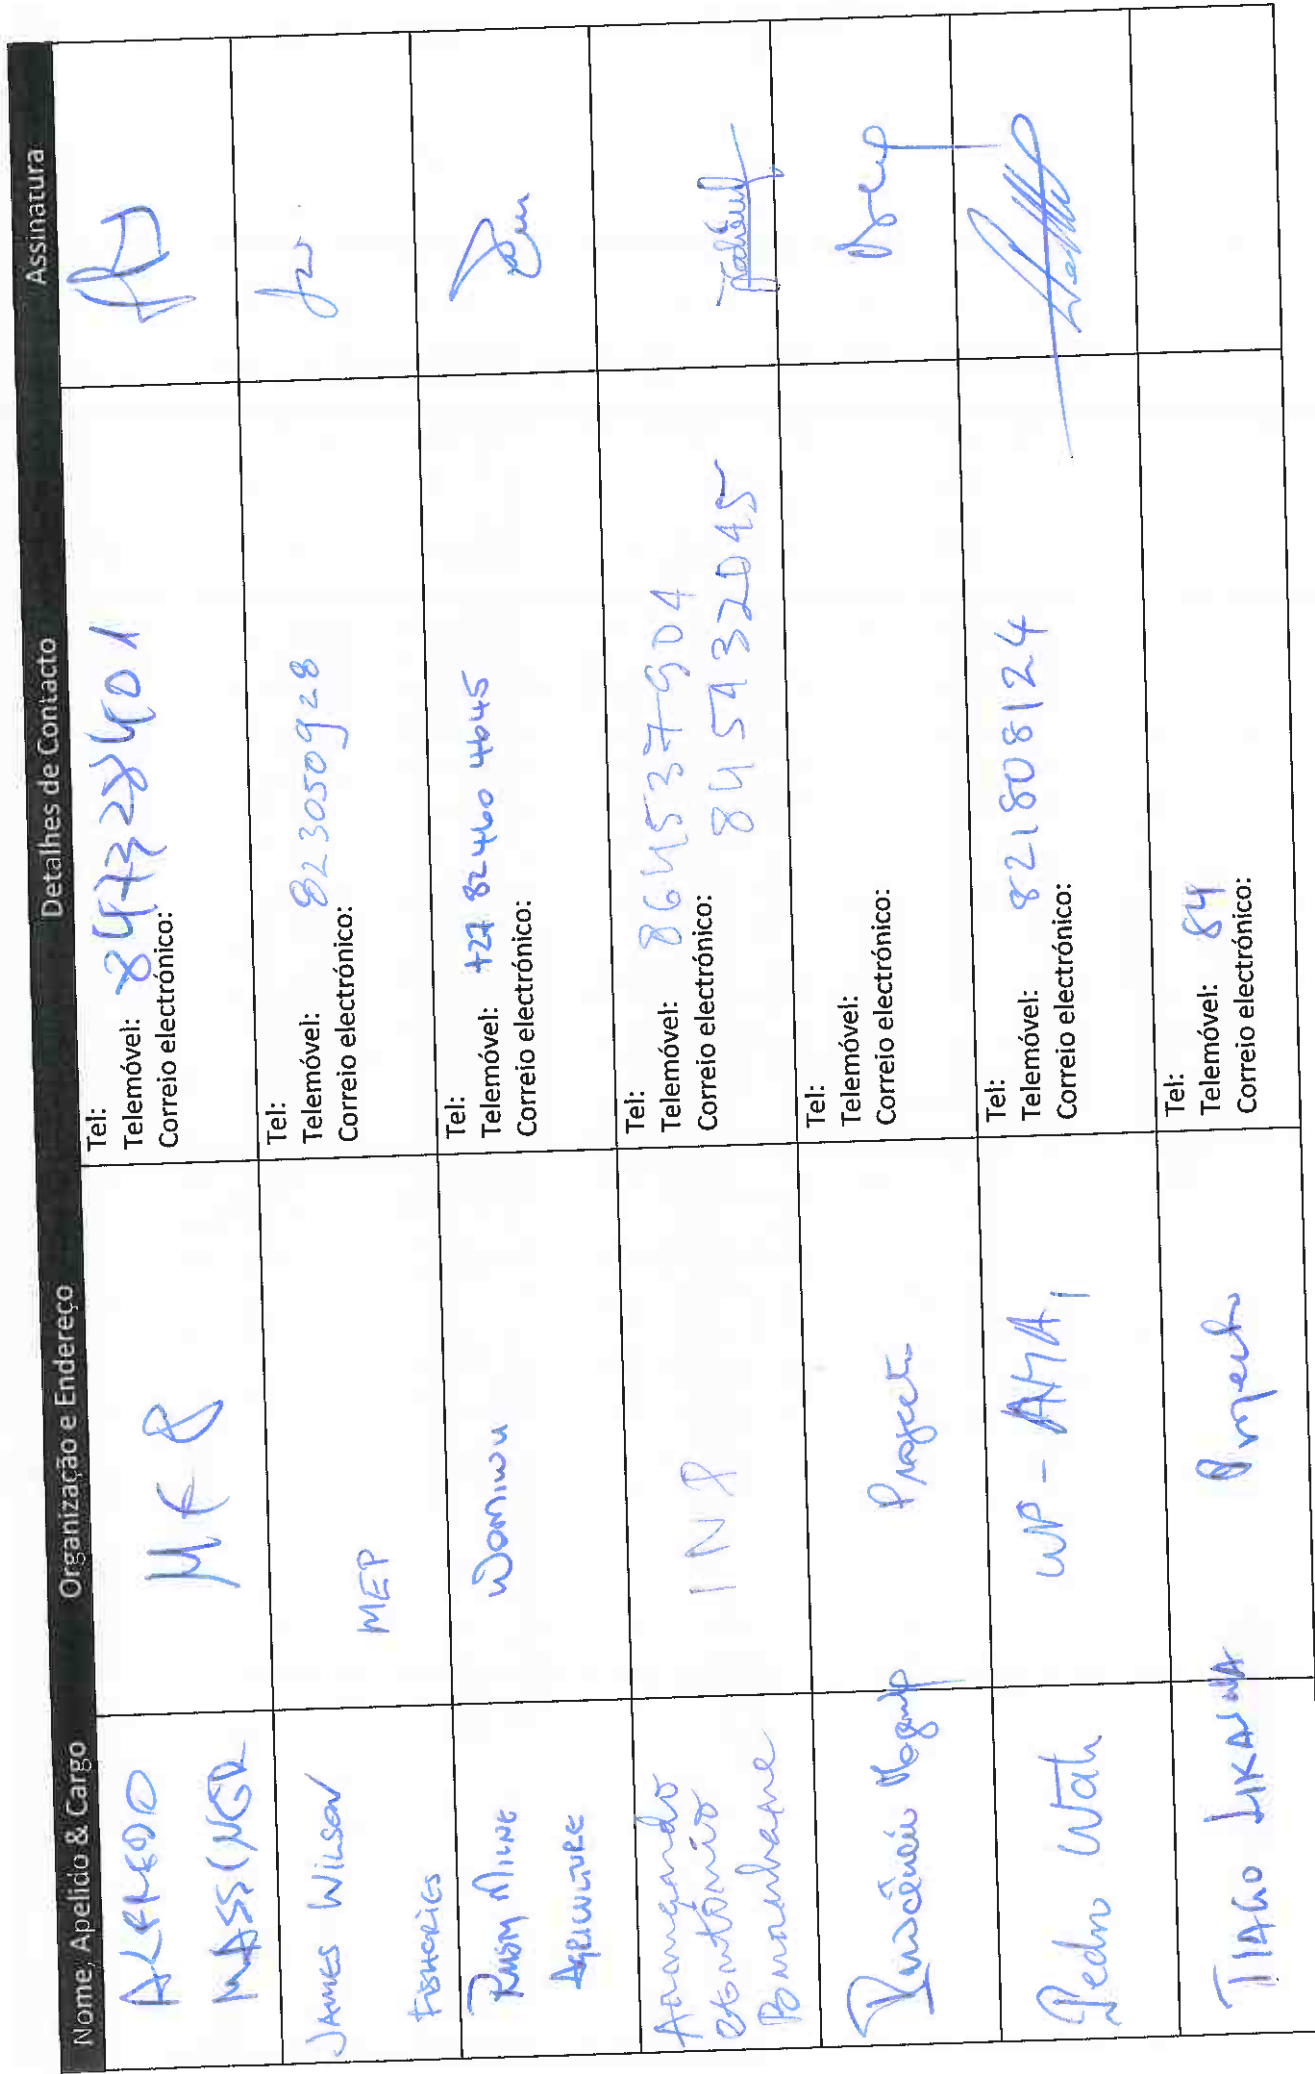 Nome, Apelido & Cargo Organização e Endereço Detalhes de Contacto Assinatura
ALFREDO
MASSINGA
MEF
Tel:
Telemóvel: 847328401
Correio electrónico:
JAMES WILSON
FISHERIES
MEP
Tel:
Telemóvel: 823050928
Correio electrónico:
MILNE
AGRICULTURE
Tel:
Telemóvel: +27 82 460 4645
Correio electrónico:
Armando
António
INP
Tel:
Telemóvel: 864537904
845432045
Correio electrónico:
Project
Tel:
Telemóvel:
Correio electrónico:
Pedro Wate
WP - AMA
Tel:
Telemóvel: 821808124
Correio electrónico:
TIAGO
Projecto
Tel:
Telemóvel: 84
Correio electrónico: